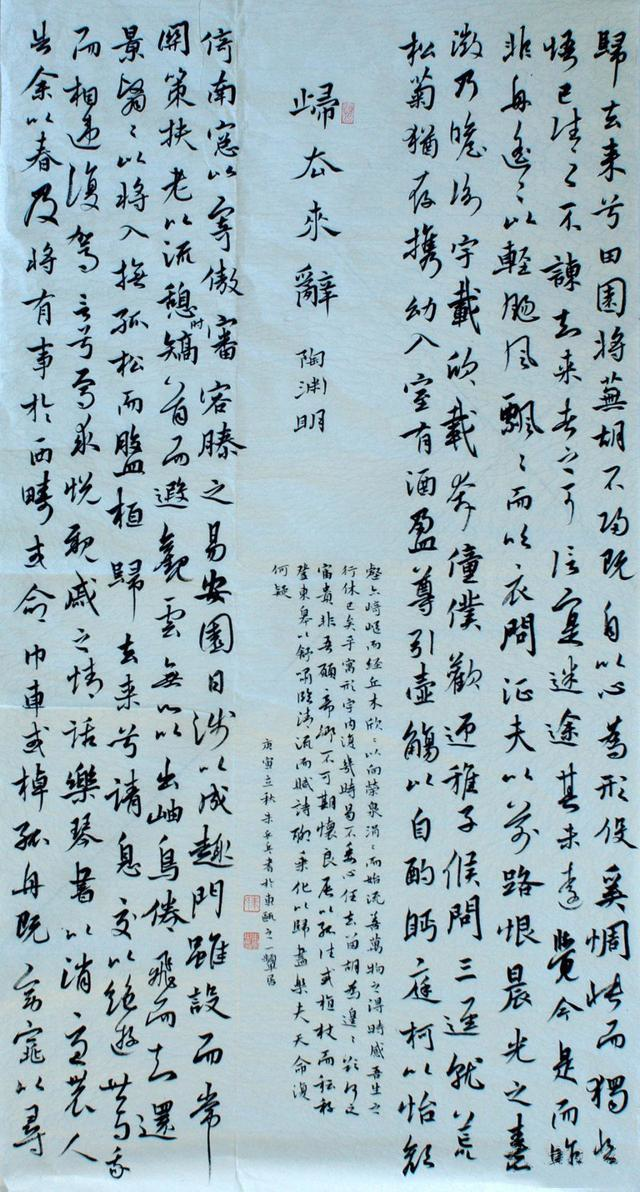 歸去来兮田園将蕪胡不歸既自以心為形役奚惆悵而獨悲
悟已往之不諫知来者之可追寔迷途其未遠覺今是而昨
非舟遥〻以輕颺風飄〻而吹衣問征夫以前路恨晨光之熹
微乃瞻衡宇載欣載奔僮僕歡迎稚子候問三逕就荒
松菊猶存携幼入室有酒盈尊引壺觴以自酌眄庭柯以怡顔
歸去來辭
陶渊明
倚南窓以寄傲審容膝之易安園日涉以成趣門雖設而常
關策扶老以流憩时矯首而遐觀雲無心以出岫鳥倦飛而知還
景翳〻以将入撫孤松而盤桓歸去来兮請息交以絶遊世与我
而相遺復駕言兮焉求悦親戚之情話樂琴書以消憂農人
告余以春及将有事於西疇或命巾車或棹孤舟既窈窕以尋
壑亦崎嶇而經丘木欣〻以向榮泉涓〻而始流善萬物之得時感吾生之
行休已矣乎寓形宇内復幾時曷不委心任去留胡為遑〻欲何之
富貴非吾願帝鄉不可期懷良辰以孤往或植杖而耘耔
登東皋以舒嘯臨清流而賦詩聊乘化以歸盡樂夫天命復
何疑
庚寅立秋朱兵書於東甌之一居